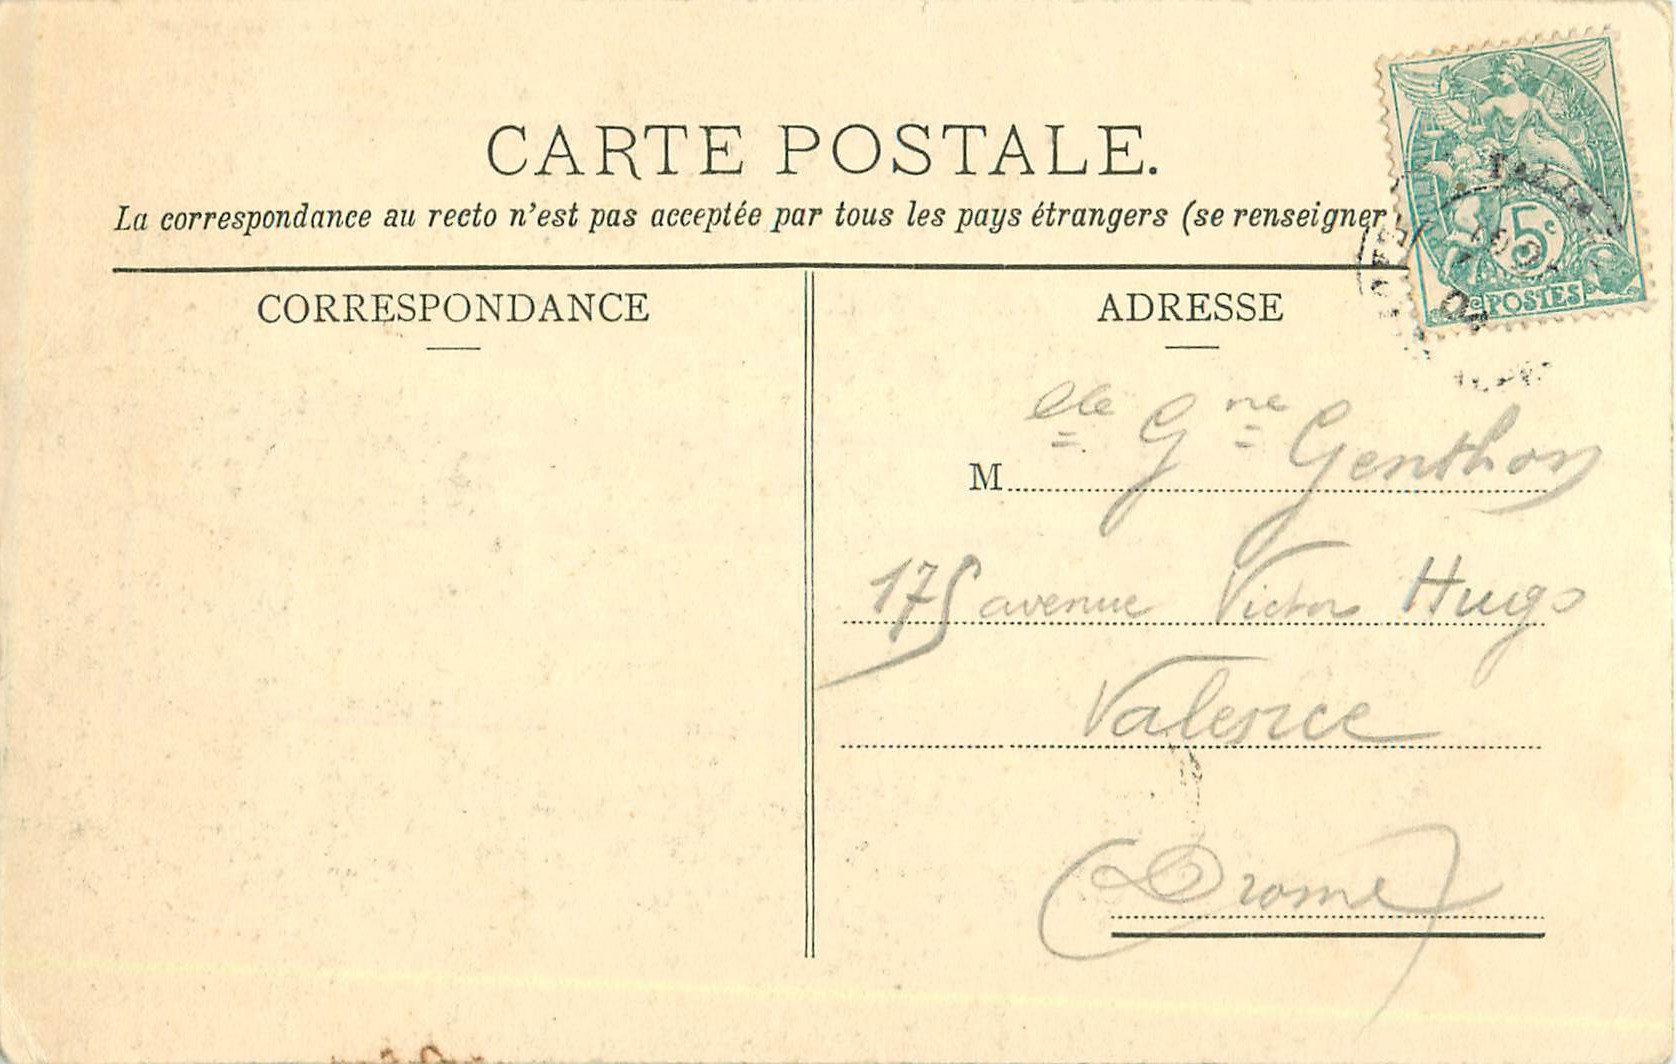 CARTE POSTALE.
La correspondance au recto n'est pas acceptée par tous les pays étrangers (se renseigner
CORRESPONDANCE
ADRESSE
5c
POSTES
Melle Gne Genthon
175 avenue Victor Hugo
Valence
(Drome)